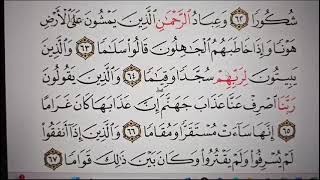 شُكُورًا ﴿٦٢﴾ وَعِبَادُ ٱلرَّحْمَٰنِ ٱلَّذِينَ يَمْشُونَ عَلَى ٱلْأَرْضِ
هَوْنًا وَإِذَا خَاطَبَهُمُ ٱلْجَٰهِلُونَ قَالُوا۟ سَلَٰمًا ﴿٦٣﴾ وَٱلَّذِينَ
يَبِيتُونَ لِرَبِّهِمْ سُجَّدًا وَقِيَٰمًا ﴿٦٤﴾ وَٱلَّذِينَ يَقُولُونَ
رَبَّنَا ٱصْرِفْ عَنَّا عَذَابَ جَهَنَّمَ ۖ إِنَّ عَذَابَهَا كَانَ غَرَامًا
﴿٦٥﴾ إِنَّهَا سَآءَتْ مُسْتَقَرًّا وَمُقَامًا ﴿٦٦﴾ وَٱلَّذِينَ إِذَآ أَنفَقُوا۟
لَمْ يُسْرِفُوا۟ وَلَمْ يَقْتُرُوا۟ وَكَانَ بَيْنَ ذَٰلِكَ قَوَامًا ﴿٦٧﴾